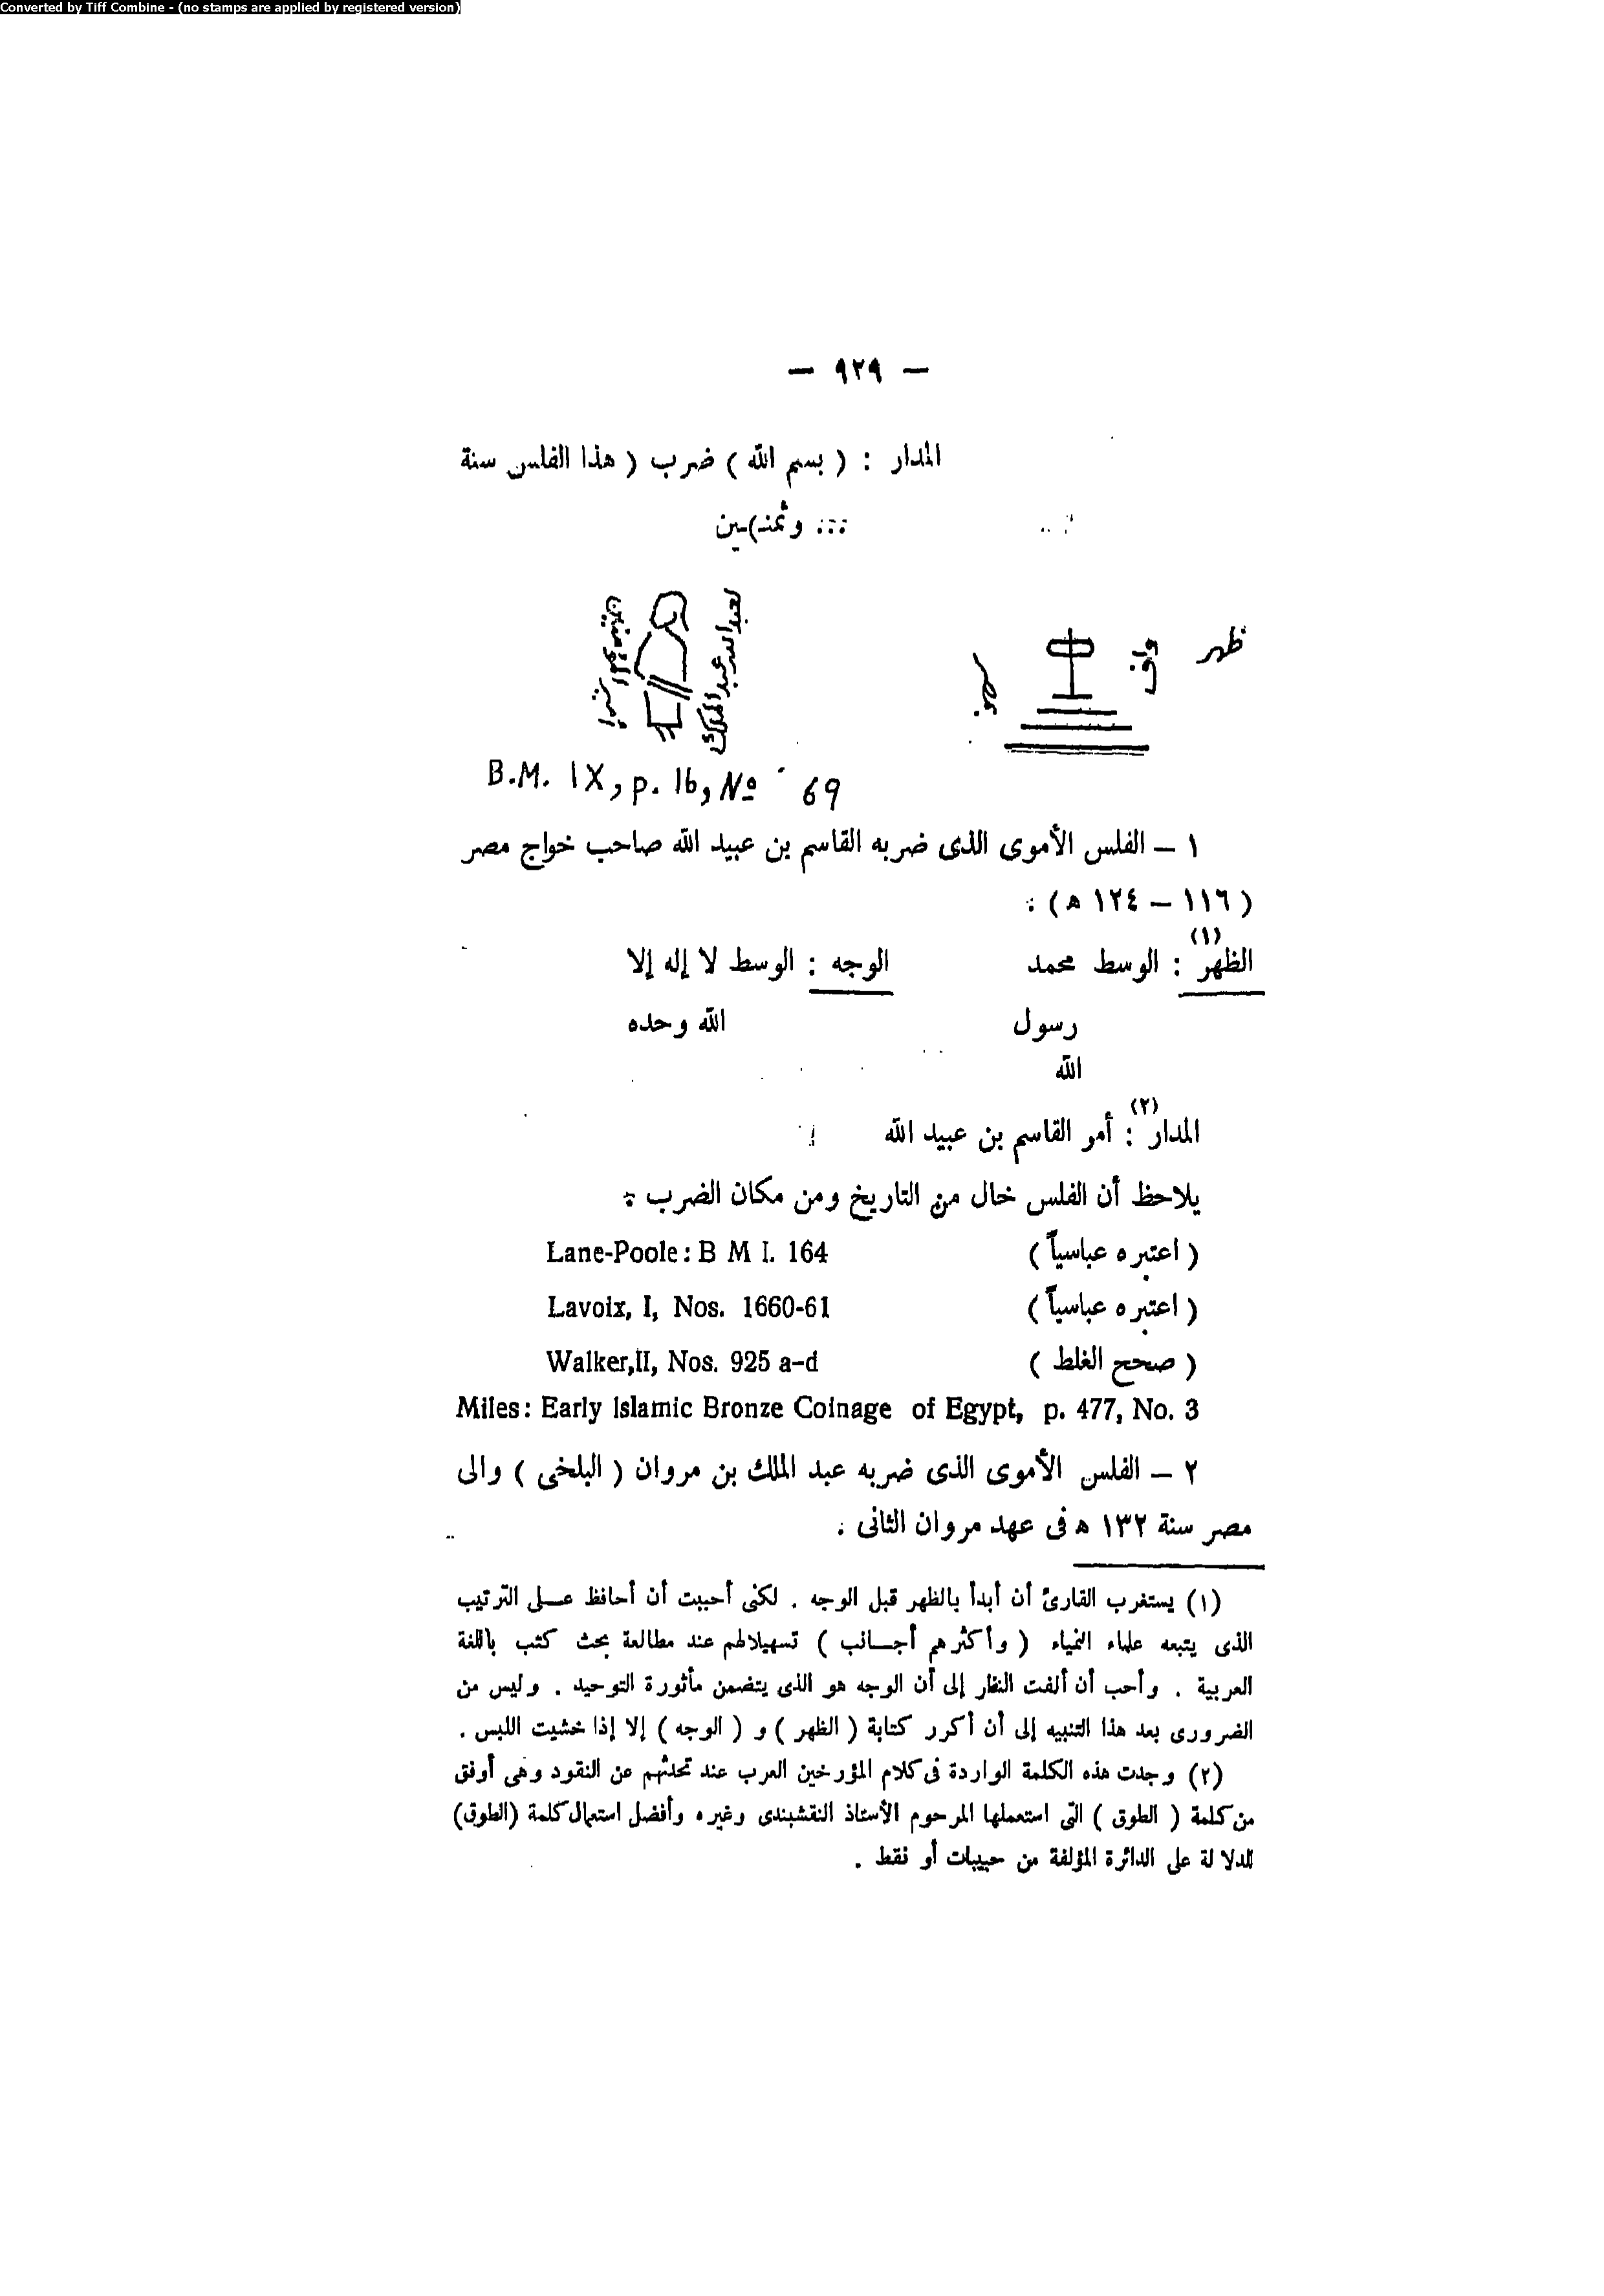 Converted by Tiff Combine - (no stamps are applied by registered version)
— ٩٢٩ —
المدار : ( بسم الله ) ضرب ( هذا الفلس سنة
... وثمنـ)ـين
ظهر
واف
لعبد الله عبد الملك
B.M. IX, p. 16, Nº 69
١ — الفلس الأموى الذى ضربه القاسم بن عبيد الله صاحب خواج مصر
( ١١٦ — ١٢٤ ه ) :
الظهر (١) : الوسط محمد الوجه : الوسط لا إله إلا
رسول الله وحده
الله
المدار (٢) : أمر القاسم بن عبيد الله
يلاحظ أن الفلس خال من التاريخ ومن مكان الضرب :
( اعتبره عباسياً ) Lane-Poole: B M I. 164
( اعتبره عباسياً ) Lavoix, I, Nos. 1660-61
( صحح الغلط ) Walker,II, Nos. 925 a-d
Miles: Early Islamic Bronze Coinage of Egypt, p. 477, No. 3
٢ — الفلس الأموى الذى ضربه عبد الملك بن مروان ( البلخى ) والى
مصر سنة ١٣٢ ه فى عهد مروان الثانى :
(١) يستغرب القارئ أن أبدأ بالظهر قبل الوجه . لكنى أحببت أن أحافظ عـلى الترتيب
الذى يتبعه علماء النمياء ( وأكثرهم أجـانب ) تسهيلا لهم عند مطالعة بحث كتب باللغة
العربية . وأحب أن ألفت النظار إلى أن الوجه هو الذى يتضمن مأثورة التوحيد . وليس من
الضرورى بعد هذا التنبيه إلى أن أكرر كتابة ( الظهر ) و ( الوجه ) إلا إذا خشيت اللبس .
(٢) وجدت هذه الكلمة الواردة فى كلام المؤرخين العرب عند تحدثهم عن النقود وهى أوفق
من كلمة ( الطوق ) التى استعملها المرحوم الأستاذ النقشبندى وغيره وأفضل استعمال كلمة (الطوق)
للدلالة على الدائرة المؤلفة من حبيبات أو نقط .